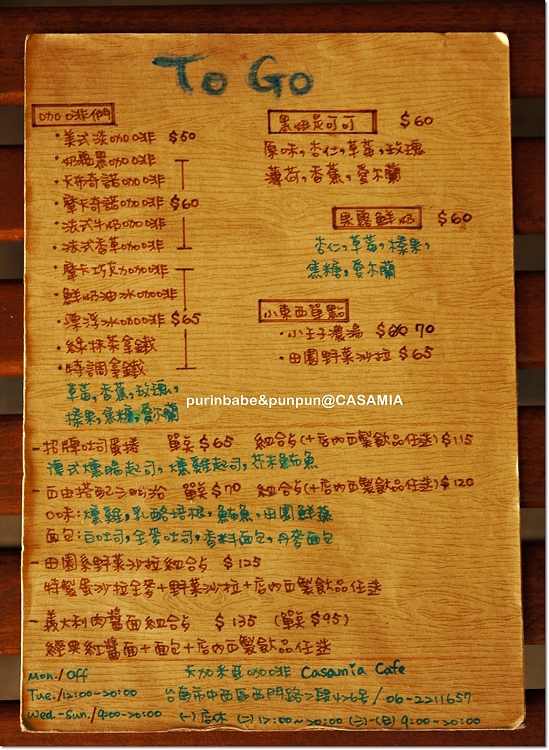 To Go
咖啡們
·美式淡咖啡 $50
·奶黯黑咖啡
·卡布奇諾咖啡
·摩卡奇諾咖啡 $60
·法式牛奶咖啡
·法式香草咖啡
·摩卡巧克咖啡
·鮮奶油冰咖啡
·漂浮冰咖啡 $65
·綠抹茶拿鐵
·特調拿鐵
草莓,香蕉,玫瑰,
榛果,焦糖,愛尔蘭
黑妞是可可 $60
原味,杏仁,草莓,玫瑰
薄荷,香蕉,愛尔蘭
果露鮮奶 $60
杏仁,草莓,榛果,
焦糖,愛尔蘭
小東西單點
·小王子濃湯 $60 70
·田園野菜沙拉 $65
purinbabe&punpun@CASAMIA
-招牌吐司蛋捲 單點$65 組合点(+店內自製飲品任選)$115
澳式燻腸起司,燻雞起司,芥末鮪魚
-自由搭配三明治 單点$70 組合点(+店內自製飲品任選)$120
口味:燻雞,乳酪培根,鮪魚,田園鮮蔬
面包:白吐司,全麥吐司,香料面包,丹麥面包
-田園系野菜沙拉組合点 $125
特製蛋沙拉全麥+野菜沙拉+店內自製飲品任選
-義大利肉醬面組合点 $135 (單点$95)
經典紅醬面+面包+店內自製飲品任選
Mon./Off 卡加米亞咖啡 Casamia Cafe
Tue./12:00~20:00 台南市中西區西門路二段426號/06-2211657
Wed.-Sun./9:00~20:00 (一)店休 (二)12:00~20:00 (三)-(日)9:00~20:00